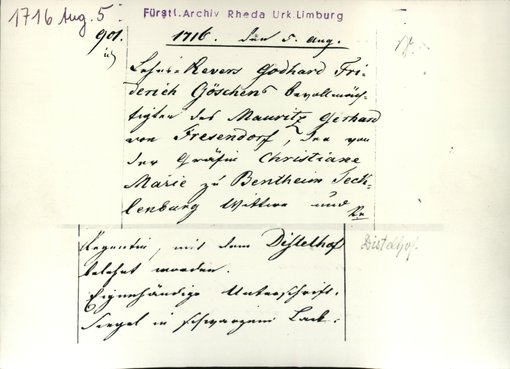 1716 Aug. 5.
Fürstl. Archiv Rheda Urk. Limburg
901.
1716. den 5. Aug.
Lehns-Revers Godhard Fri-
derich Göschens bevollmäch-
tigten des Mauritz Gerhard
von Fresendorf, der von
der Gräfin Christiane
Marie zu Bentheim Teck-
lenburg Wittwe und
Re
Regentin, mit dem Distelhof
Distelhof.
belehnt worden.
Eigenhändige Unterschrift.
Siegel in schwarzem Lack.